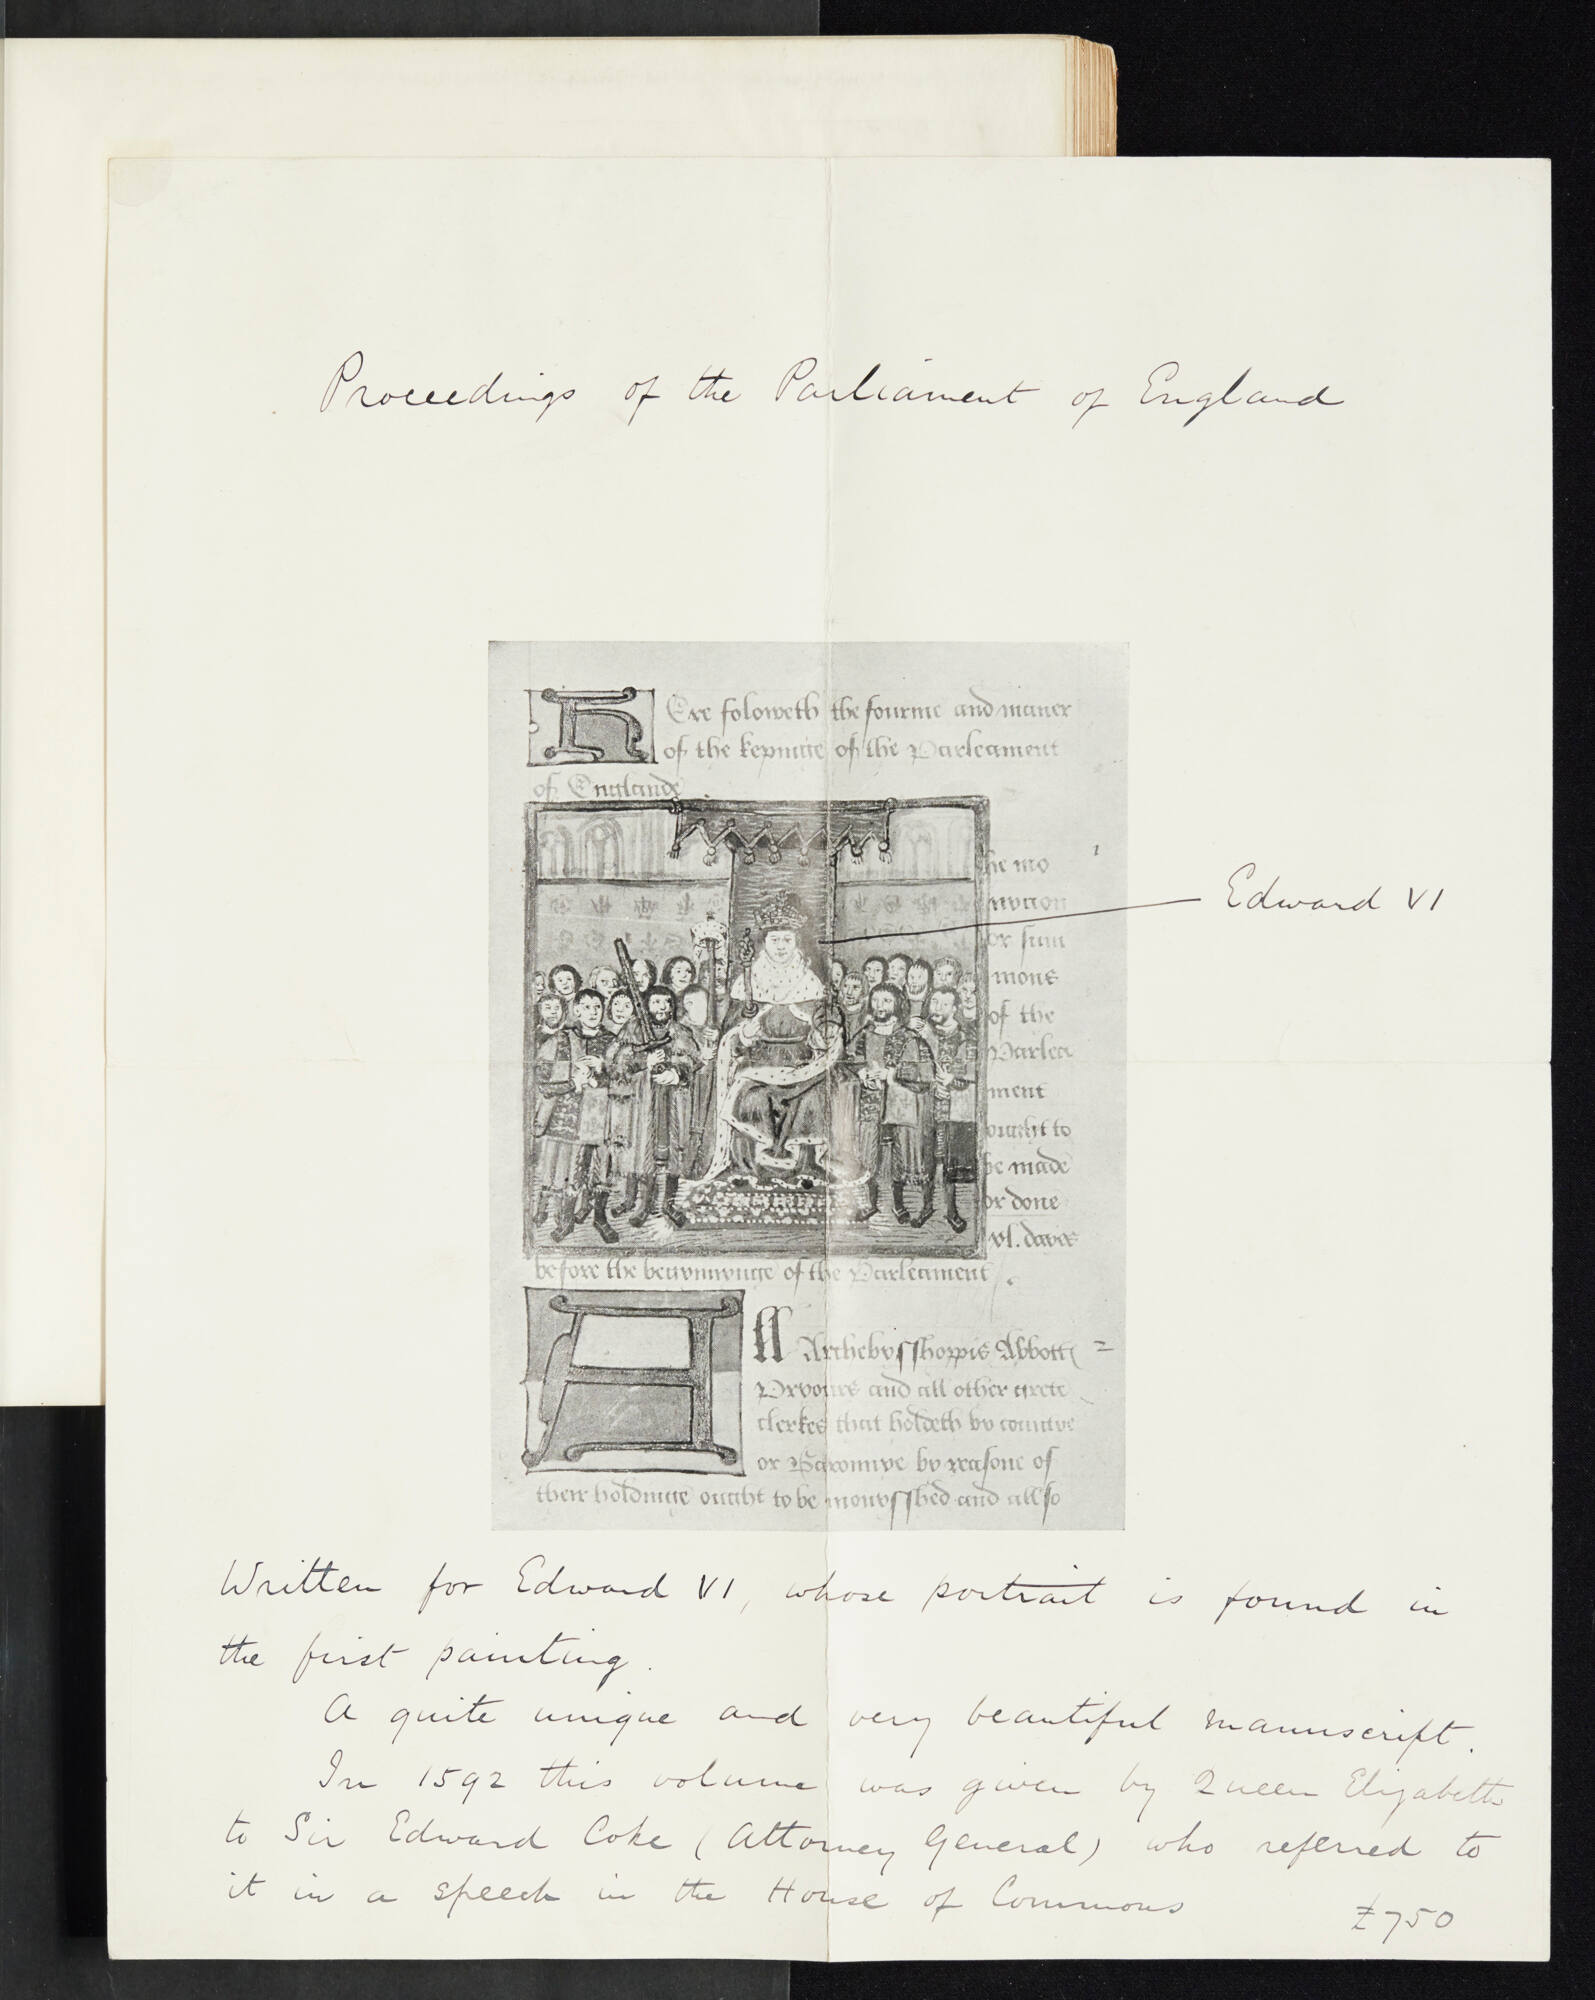 Proceedings of the Parliament of England
Here foloweth the fourme and maner
of the kepinge of the Parleament
of Englande
the mo
nycion
or sum
mons
of the
Parlea
ment
ought to
be made
or done
vl. dayes
before the begynnynge of the Parleament
1
Edward VI
All Archebysshoppis Abbott
2
Pryours and all other grete
clerkes that holdeth by countye
or Baronnye by reasone of
their holdinge ought to be monysshed and allso
Written for Edward VI, whose portrait is found in
the first painting.
A quite unique and very beautiful manuscript.
In 1592 this volume was given by Queen Elizabeth
to Sir Edward Coke (Attorney General) who referred to
it in a speech in the House of Commons
£750